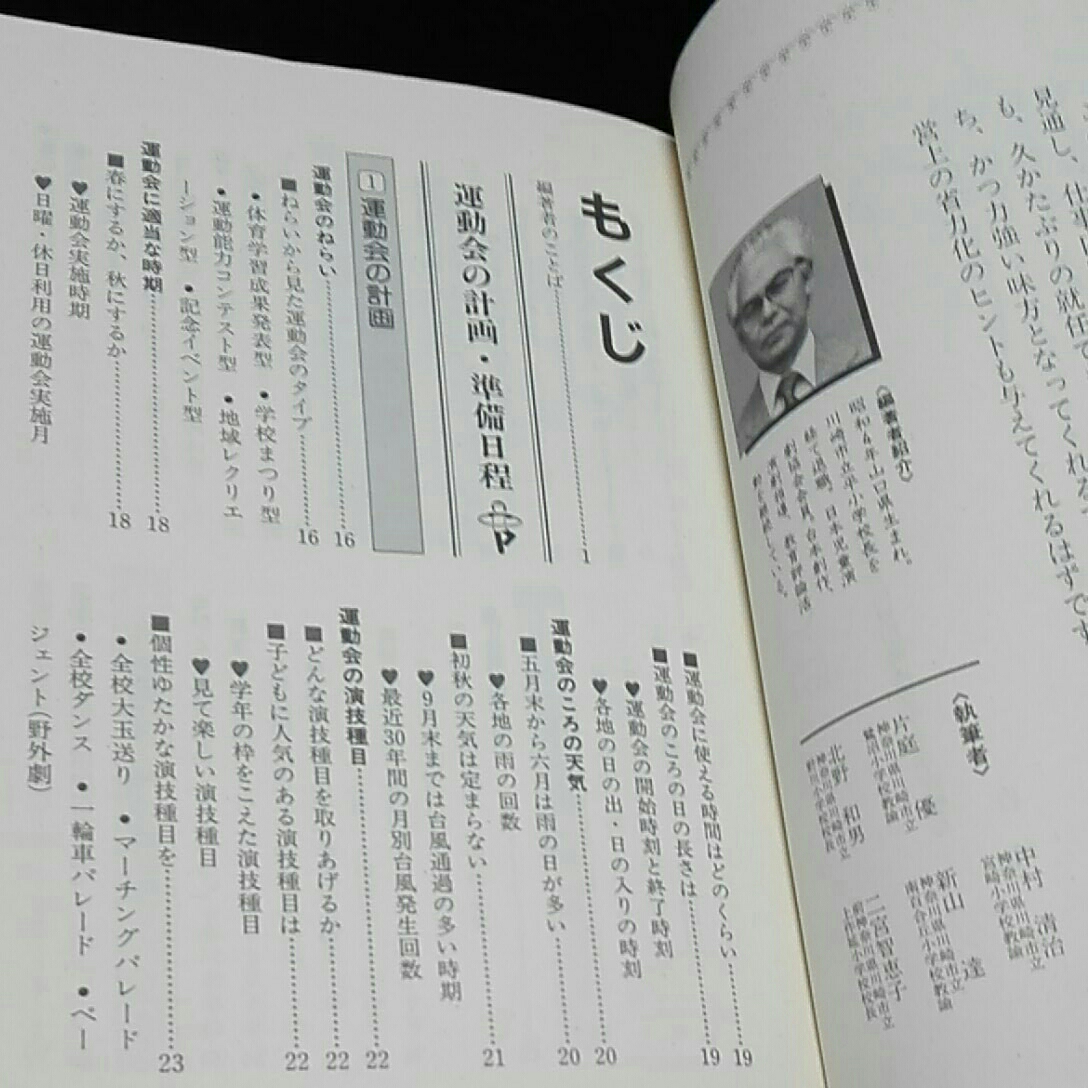 見通し、仕事
も、久かたぶりの就任で
ち、かつ力強い味方となってくれる
営上の省力化のヒントも与えてくれるはずです
〈編著者紹介〉
昭和4年山口県生まれ。
川崎市立平小学校長を
経て退職。日本児童演
劇協会会員。台本創作、
演劇指導、教育評論活
動を展開している。
〈執筆者〉
中村 清治
神奈川県川崎市立
宮崎小学校教諭
片庭 優
神奈川県川崎市立
鷺沼小学校教諭
新山 達
神奈川県川崎市立
南百合丘小学校教諭
北野 和男
神奈川県川崎市立
二宮智恵子
前神奈川県川崎市立
もくじ
編著者のことば………1
運動会の計画・準備日程
1 運動会の計画
運動会のねらい………16
■ねらいから見た運動会のタイプ………16
•体育学習成果発表型 •学校まつり型
•運動能力コンテスト型 •地域レクリエ
ーション型 •記念イベント型
運動会に適当な時期………18
■春にするか、秋にするか………18
♥運動会実施時期
♥日曜・休日利用の運動会実施月
■運動会に使える時間はどのくらい………19
■運動会のころの日の長さは………19
♥運動会の開始時刻と終了時刻
♥各地の日の出・日の入りの時刻
運動会のころの天気………20
■五月末から六月は雨の日が多い………20
♥各地の雨の回数
■初秋の天気は定まらない………21
♥9月末までは台風通過の多い時期
♥最近30年間の月別台風発生回数
運動会の演技種目………22
■どんな演技種目を取りあげるか………22
■子どもに人気のある演技種目は………22
♥学年の枠をこえた演技種目
♥見て楽しい演技種目
■個性ゆたかな演技種目を………23
•全校大玉送り •マーチングパレード
•全校ダンス •一輪車パレード •ペー
ジェント(野外劇)